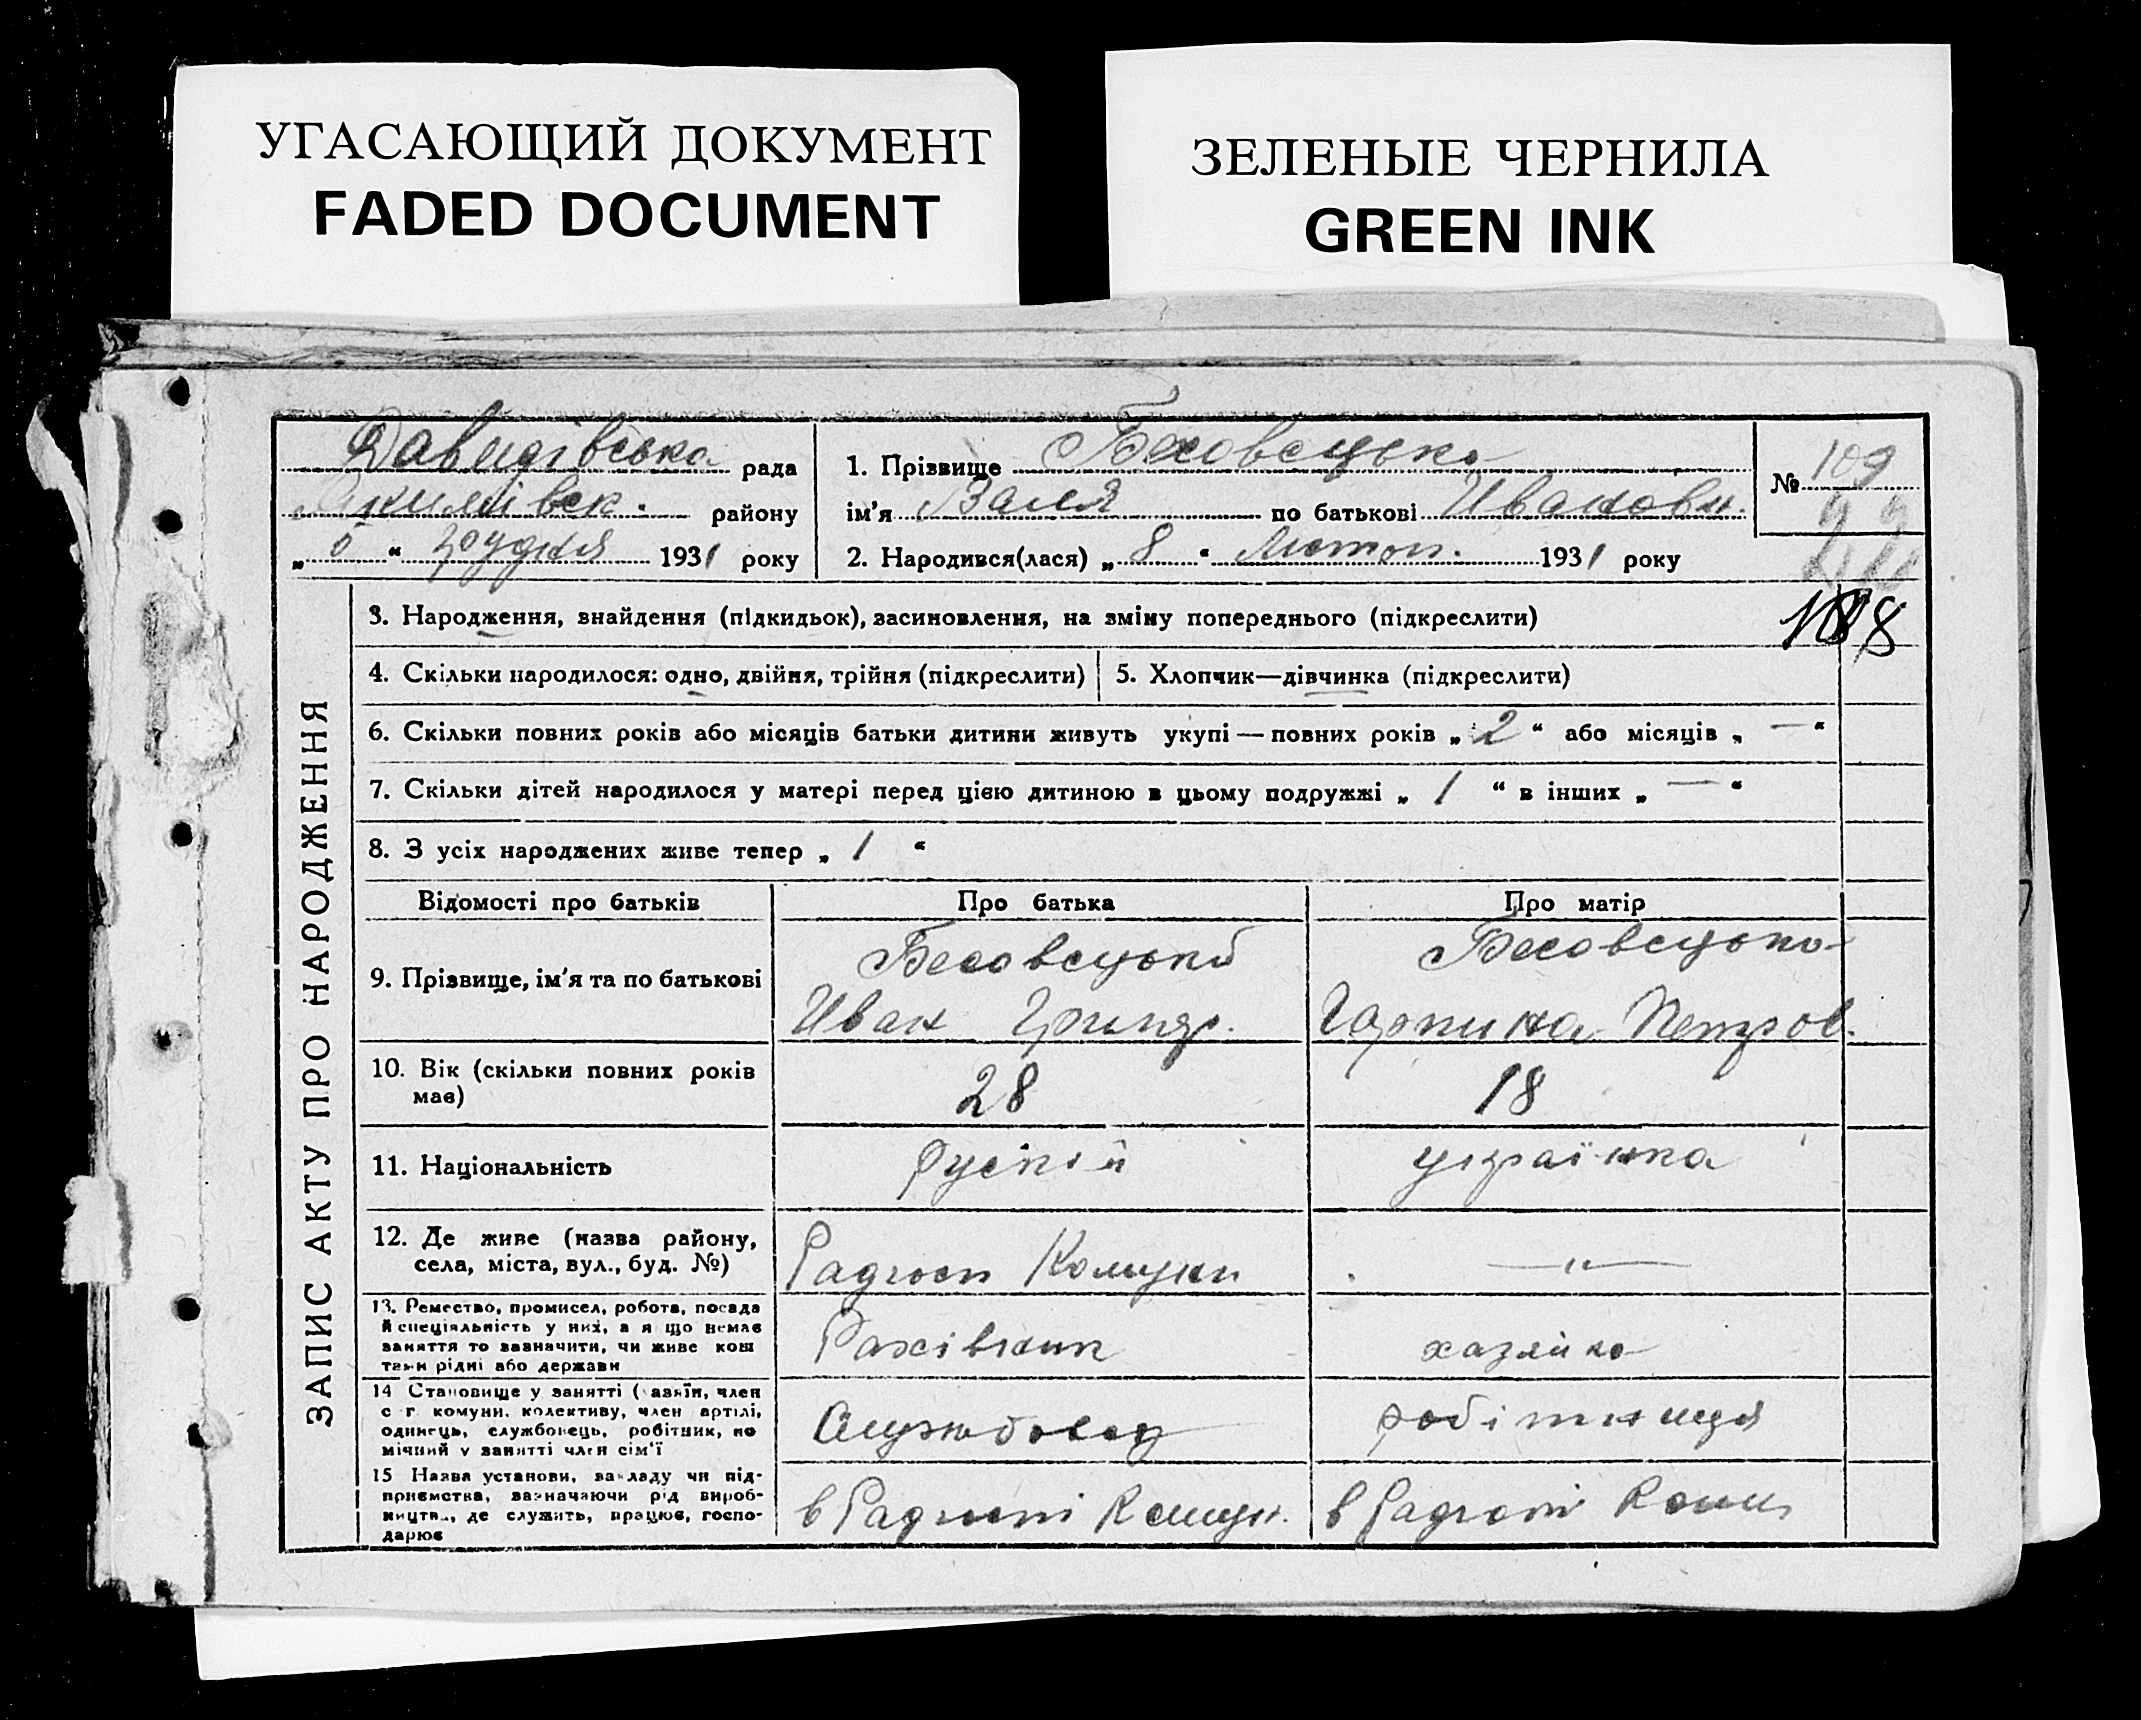 УГАСАЮЩИЙ ДОКУМЕНТ
FADED DOCUMENT
ЗЕЛЕНЫЕ ЧЕРНИЛА
GREEN INK
Давидівська рада
Якимівск. району
„ “ Грудня 1931 року
1. Прізвище
ім'я Валя по батькові Ивановн.
2. Народився(лася) „ 8 “ Листоп. 1931 року
№ 109
188
ЗАПИС АКТУ ПРО НАРОДЖЕННЯ
3. Народження, знайдення (підкидьок), засиновлення, на зміну попереднього (підкреслити)
4. Скільки народилося: одно, двійня, трійня (підкреслити)
5. Хлопчик—дівчинка (підкреслити)
6. Скільки повних років або місяців батьки дитини живуть укупі — повних років „ 2 “ або місяців „ — “
7. Скільки дітей народилося у матері перед цією дитиною в цьому подружжі „ 1 “ в інших „ — “
8. З усіх народжених живе тепер „ 1 “
Відомості про батьків
Про батька
Про матір
9. Прізвище, ім'я та по батькові
Иван Григор.
Петров.
10. Вік (скільки повних років
має)
28
18
11. Національність
Руський
українка
12. Де живе (назва району,
села, міста, вул., буд. №)
Радгосп Комуни
— " —
13. Ремество, промисел, робота, посада
й спеціяльність у них, а я що немає
заняття то зазначити, чи живе кош
тами рідні або держави
Рахівник
хазяйка
14 Становище у занятті (хазяїн, член
с г комуни, колективу, член артілі,
одинець, службовець, робітник, по
мічний у занятті член сім'ї
Службовец
робітниця
15 Назва установи, закладу чи під-
приємства, зазначаючи рід вироб-
ництва, де служить, працює, госпо-
дарює
в Радгоспі Комун.
в Радгоспі Комун